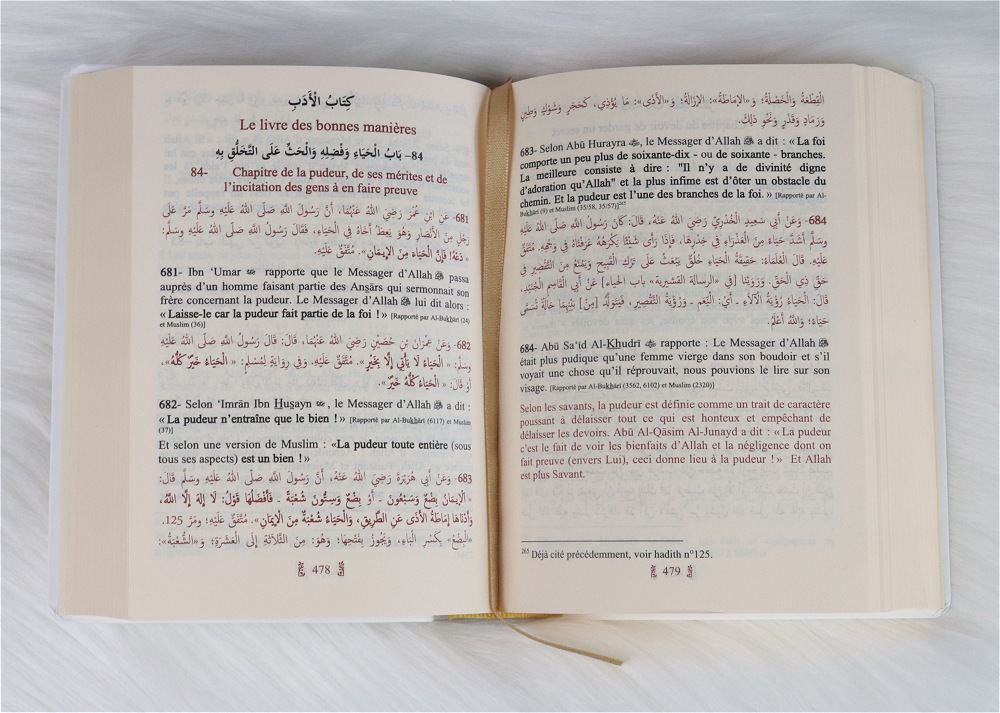 كِتَابُ الْأَدَبِ
Le livre des bonnes manières
84- بَابُ الْحَيَاءِ وَفَضْلِهِ وَالْحَثِّ عَلَى التَّخَلُّقِ بِهِ
84- Chapitre de la pudeur, de ses mérites et de
l’incitation des gens à en faire preuve
681- عَنِ ابْنِ عُمَرَ رَضِيَ اللهُ عَنْهُمَا، أَنَّ رَسُولَ اللهِ صَلَّى اللهُ عَلَيْهِ وَسَلَّمَ مَرَّ عَلَى
رَجُلٍ مِنَ الْأَنْصَارِ وَهُوَ يَعِظُ أَخَاهُ فِي الْحَيَاءِ، فَقَالَ رَسُولُ اللهِ صَلَّى اللهُ عَلَيْهِ وَسَلَّمَ:
«دَعْهُ! فَإِنَّ الْحَيَاءَ مِنَ الْإِيمَانِ». مُتَّفَقٌ عَلَيْهِ.
681- Ibn ‘Umar rapporte que le Messager d’Allah ﷺ passa
auprès d’un homme faisant partie des Anṣārs qui sermonnait son
frère concernant la pudeur. Le Messager d’Allah ﷺ lui dit alors :
« Laisse-le car la pudeur fait partie de la foi ! » [Rapporté par Al-Bukhārī (24)
et Muslim (36)]
682- وَعَنْ عِمْرَانَ بْنِ حُصَيْنٍ رَضِيَ اللهُ عَنْهُمَا، قَالَ: قَالَ رَسُولُ اللهِ صَلَّى اللهُ عَلَيْهِ
وَسَلَّمَ: «الْحَيَاءُ لَا يَأْتِي إِلَّا بِخَيْرٍ». مُتَّفَقٌ عَلَيْهِ. وَفِي رِوَايَةٍ لِمُسْلِمٍ: «الْحَيَاءُ خَيْرٌ كُلُّهُ»،
أَوْ قَالَ: «الْحَيَاءُ كُلُّهُ خَيْرٌ».
682- Selon ‘Imrān Ibn Ḥuṣayn , le Messager d’Allah ﷺ a dit :
« La pudeur n’entraîne que le bien ! » [Rapporté par Al-Bukhārī (6117) et Muslim
(37)]
Et selon une version de Muslim : «La pudeur toute entière (sous
tous ses aspects) est un bien ! »
683- وَعَنْ أَبِي هُرَيْرَةَ رَضِيَ اللهُ عَنْهُ، أَنَّ رَسُولَ اللهِ صَلَّى اللهُ عَلَيْهِ وَسَلَّمَ قَالَ:
«الْإِيمَانُ بِضْعٌ وَسَبْعُونَ ـ أَوْ بِضْعٌ وَسِتُّونَ شُعْبَةً ـ فَأَفْضَلُهَا قَوْلُ: لَا إِلَهَ إِلَّا اللهُ،
وَأَدْنَاهَا إِمَاطَةُ الْأَذَى عَنِ الطَّرِيقِ، وَالْحَيَاءُ شُعْبَةٌ مِنَ الْإِيمَانِ». مُتَّفَقٌ عَلَيْهِ؛ وَمَرَّ 125.
«الْبِضْعُ» بِكَسْرِ الْبَاءِ، وَيَجُوزُ بِفَتْحِهَا؛ وَهُوَ: مِنَ الثَّلَاثَةِ إِلَى الْعَشَرَةِ؛ وَ«الشُّعْبَةُ»:
478
الْقِطْعَةُ وَالْخَصْلَةُ؛ وَ«الْإِمَاطَةُ»: الْإِزَالَةُ؛ وَ«الْأَذَى»: مَا يُؤْذِي، كَحَجَرٍ وَشَوْكٍ وَطِينٍ
وَرَمَادٍ وَقَذَرٍ وَنَحْوِ ذَلِكَ.
683- Selon Abū Hurayra , le Messager d’Allah ﷺ a dit : « La foi
comporte un peu plus de soixante-dix - ou de soixante - branches.
La meilleure consiste à dire : "Il n’y a de divinité digne
d’adoration qu’Allah" et la plus infime est d’ôter un obstacle du
chemin. Et la pudeur est l’une des branches de la foi. » [Rapporté par Al-
Bukhārī (9) et Muslim (35/58, 35/57)]²⁶⁵
684- وَعَنْ أَبِي سَعِيدٍ الْخُدْرِيِّ رَضِيَ اللهُ عَنْهُ، قَالَ: كَانَ رَسُولُ اللهِ صَلَّى اللهُ عَلَيْهِ
وَسَلَّمَ أَشَدَّ حَيَاءً مِنَ الْعَذْرَاءِ فِي خِدْرِهَا، فَإِذَا رَأَى شَيْئًا يَكْرَهُهُ عَرَفْنَاهُ فِي وَجْهِهِ. مُتَّفَقٌ
عَلَيْهِ. قَالَ الْعُلَمَاءُ: حَقِيقَةُ الْحَيَاءِ خُلُقٌ يَبْعَثُ عَلَى تَرْكِ الْقَبِيحِ وَيَمْنَعُ مِنَ التَّقْصِيرِ فِي
حَقِّ ذِي الْحَقِّ. وَرَوَيْنَا [في «الرسالة القشيرية» باب الحياء] عَنْ أَبِي الْقَاسِمِ الْجُنَيْدِ،
قَالَ: الْحَيَاءُ رُؤْيَةُ الْآلَاءِ ـ أَيْ: النِّعَمِ ـ وَرُؤْيَةُ التَّقْصِيرِ، فَيَتَوَلَّدُ [مِنْ] بَيْنِهِمَا حَالَةٌ تُسَمَّى
حَيَاءً؛ وَاللهُ أَعْلَمُ.
684- Abū Sa‘īd Al-Khudrī rapporte : Le Messager d’Allah ﷺ
était plus pudique qu’une femme vierge dans son boudoir et s’il
voyait une chose qu’il réprouvait, nous pouvions le lire sur son
visage. [Rapporté par Al-Bukhārī (3562, 6102) et Muslim (2320)]
Selon les savants, la pudeur est définie comme un trait de caractère
poussant à délaisser tout ce qui est honteux et empêchant de
délaisser les devoirs. Abū Al-Qāsim Al-Junayd a dit : « La pudeur
c’est le fait de voir les bienfaits d’Allah et la négligence dont on
fait preuve (envers Lui), ceci donne lieu à la pudeur ! » Et Allah
est plus Savant.
²⁶⁵ Déjà cité précédemment, voir hadith n°125.
479